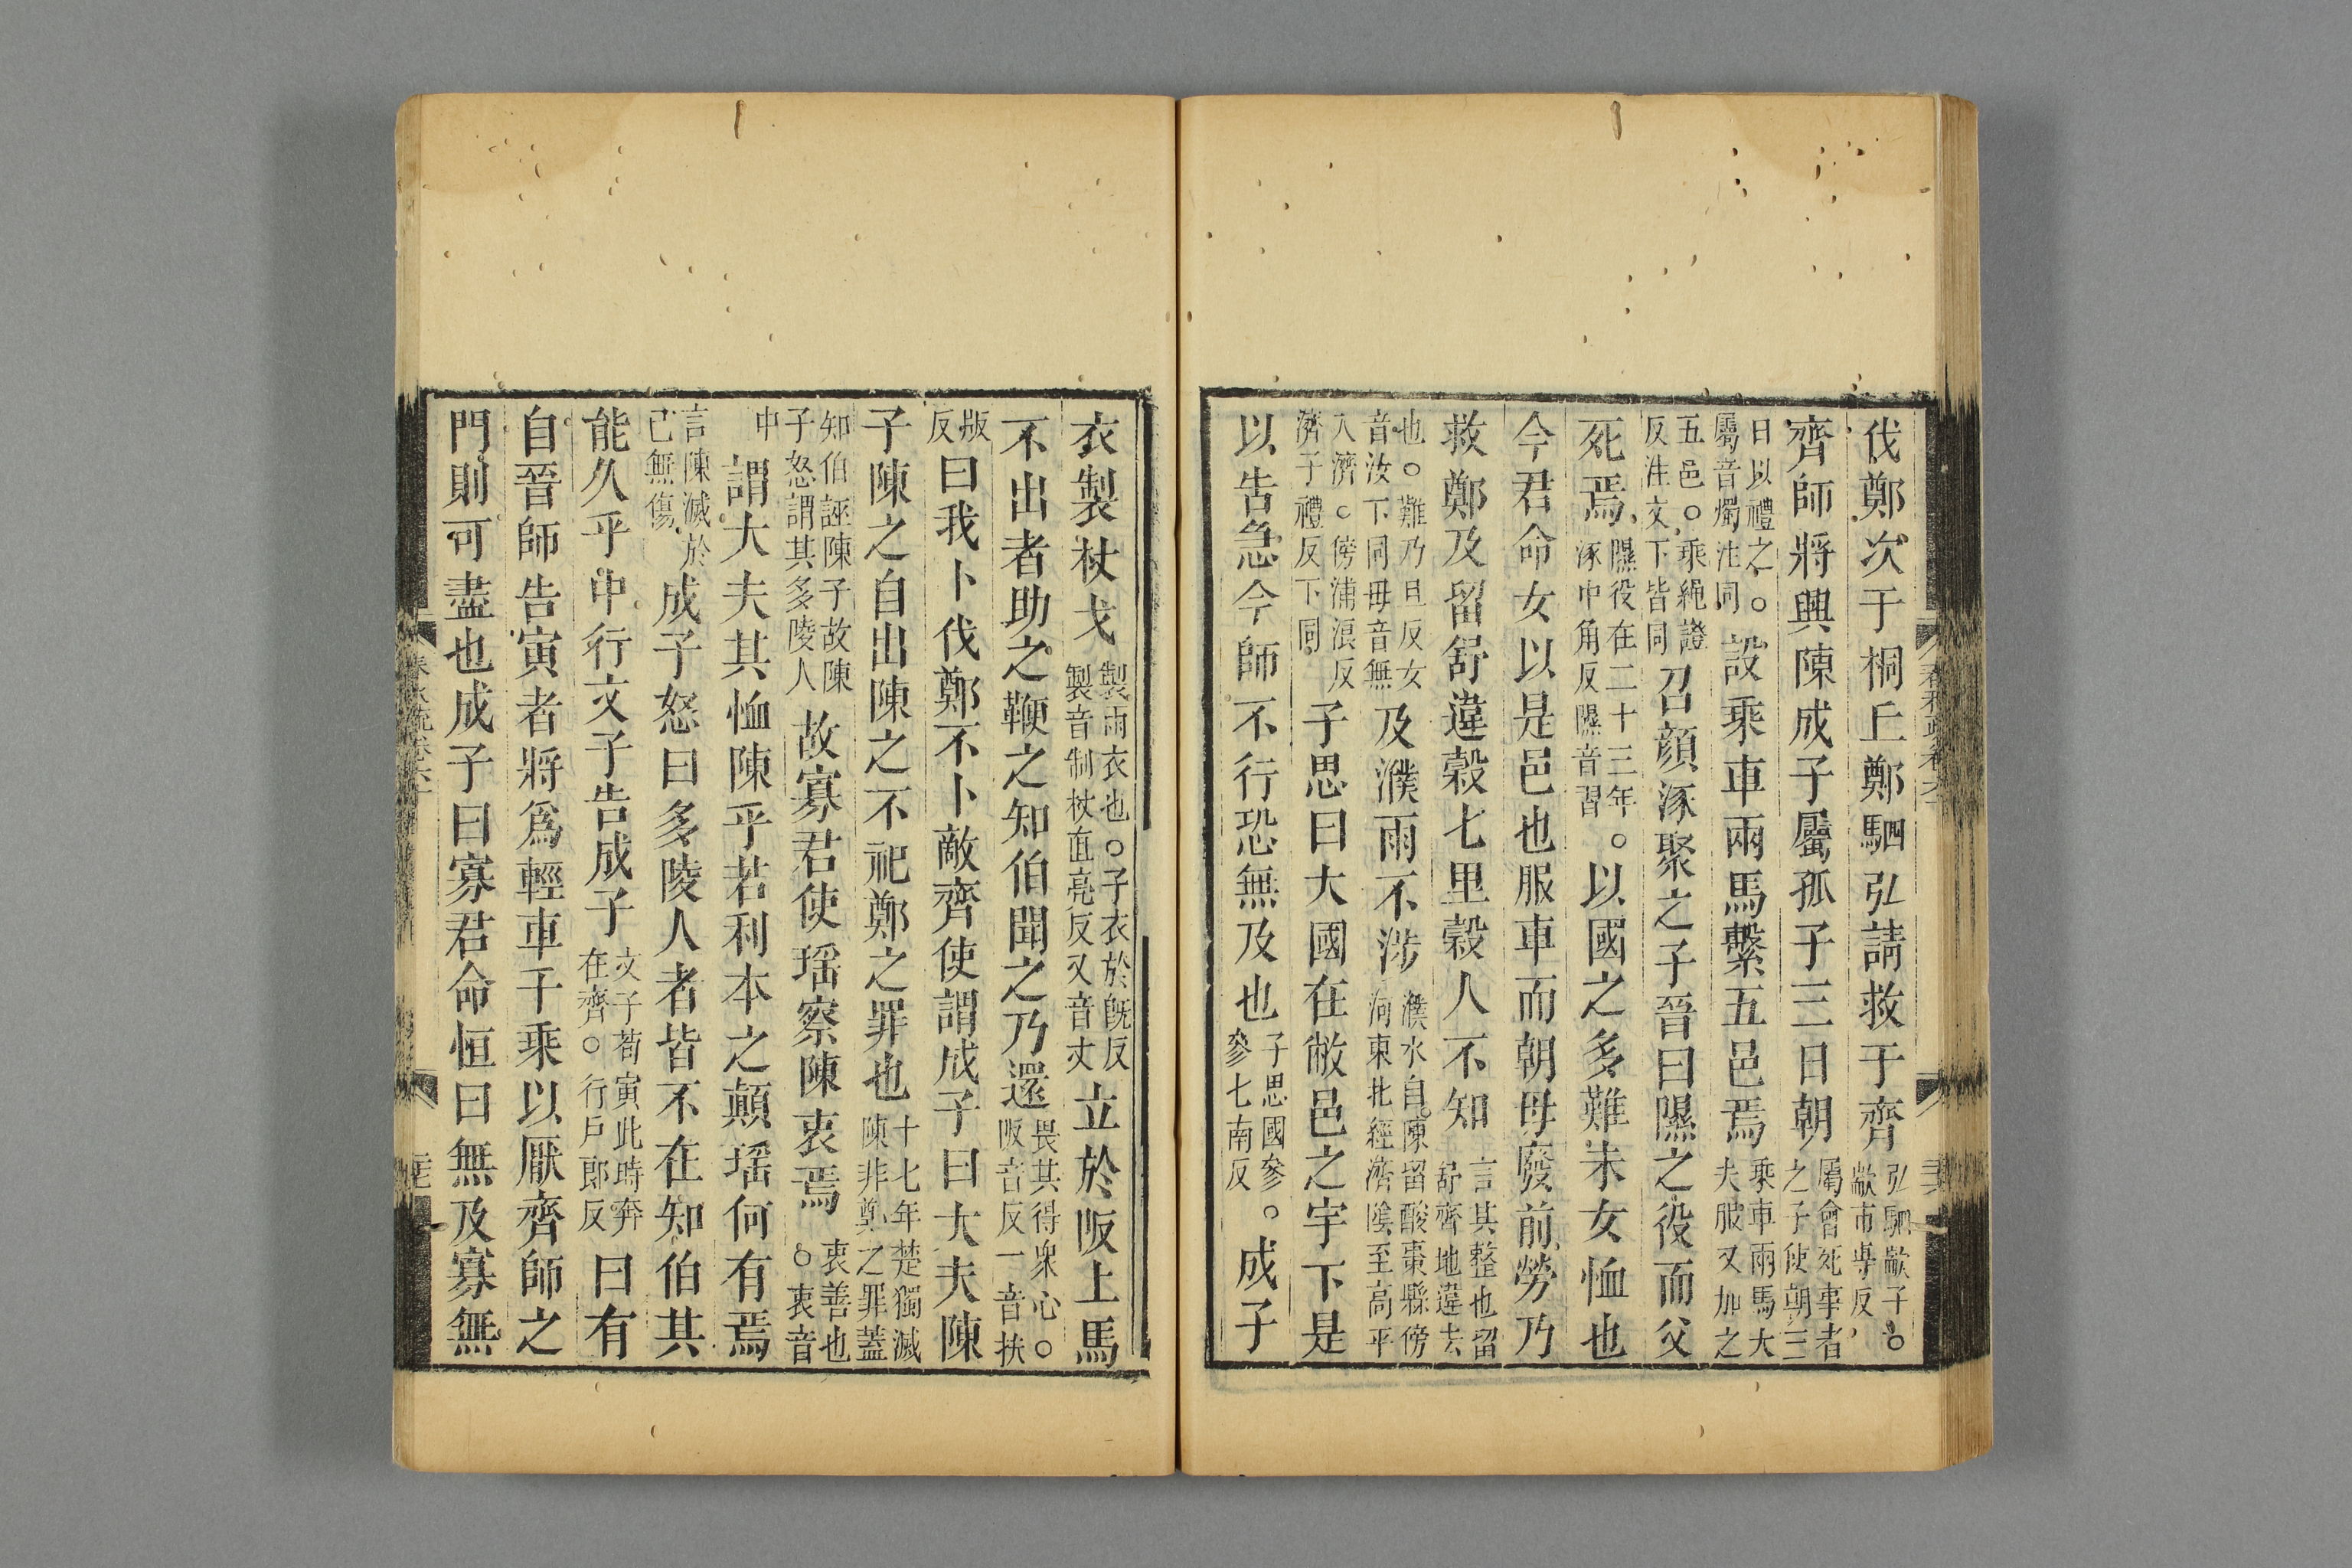 伐鄭次于桐丘鄭駟弘請救于齊弘駟歂子○歂市專反
齊師將興陳成子屬孤子三日朝屬會死事者之子使朝三
日以禮之○屬音燭注同設乘車兩馬繫五邑焉乘車兩馬大夫服又加之
五邑○乘繩證反注文下皆同召顏涿聚之子晉曰隰之役而父
死焉隰役在二十三年○涿中角反隰音習以國之多難未女恤也
今君命女以是邑也服車而朝毋廢前勞乃
救鄭及留舒違穀七里穀人不知言其整也留舒齊地違去
也○難乃旦反女音汝下同毋音無及濮雨不涉濮水自陳留酸棗縣傍河東北經濟陰至高平
入濟○傍蒲浪反濟子禮反下同子思曰大國在敝邑之宇下是
以告急今師不行恐無及也子思國參○參七南反成子
衣製杖戈製雨衣也○子衣於旣反製音制杖直亮反又音丈立於阪上馬
不出者助之鞭之知伯聞之乃還畏其得衆心○阪音反一音扶
版反曰我卜伐鄭不卜敵齊使謂成子曰大夫陳
子陳之自出陳之不祀鄭之罪也十七年楚獨滅陳非鄭之罪蓋
知伯誣陳子故陳子怒謂其多陵人故寡君使瑶察陳衷焉衷善也○衷音
中謂大夫其恤陳乎若利本之顛瑶何有焉
言陳滅於己無傷成子怒曰多陵人者皆不在知伯其
能久乎中行文子告成子文子荀寅此時奔在齊○行戶郎反曰有
自晉師告寅者將爲輕車千乘以厭齊師之
門則可盡也成子曰寡君命恒曰無及寡無